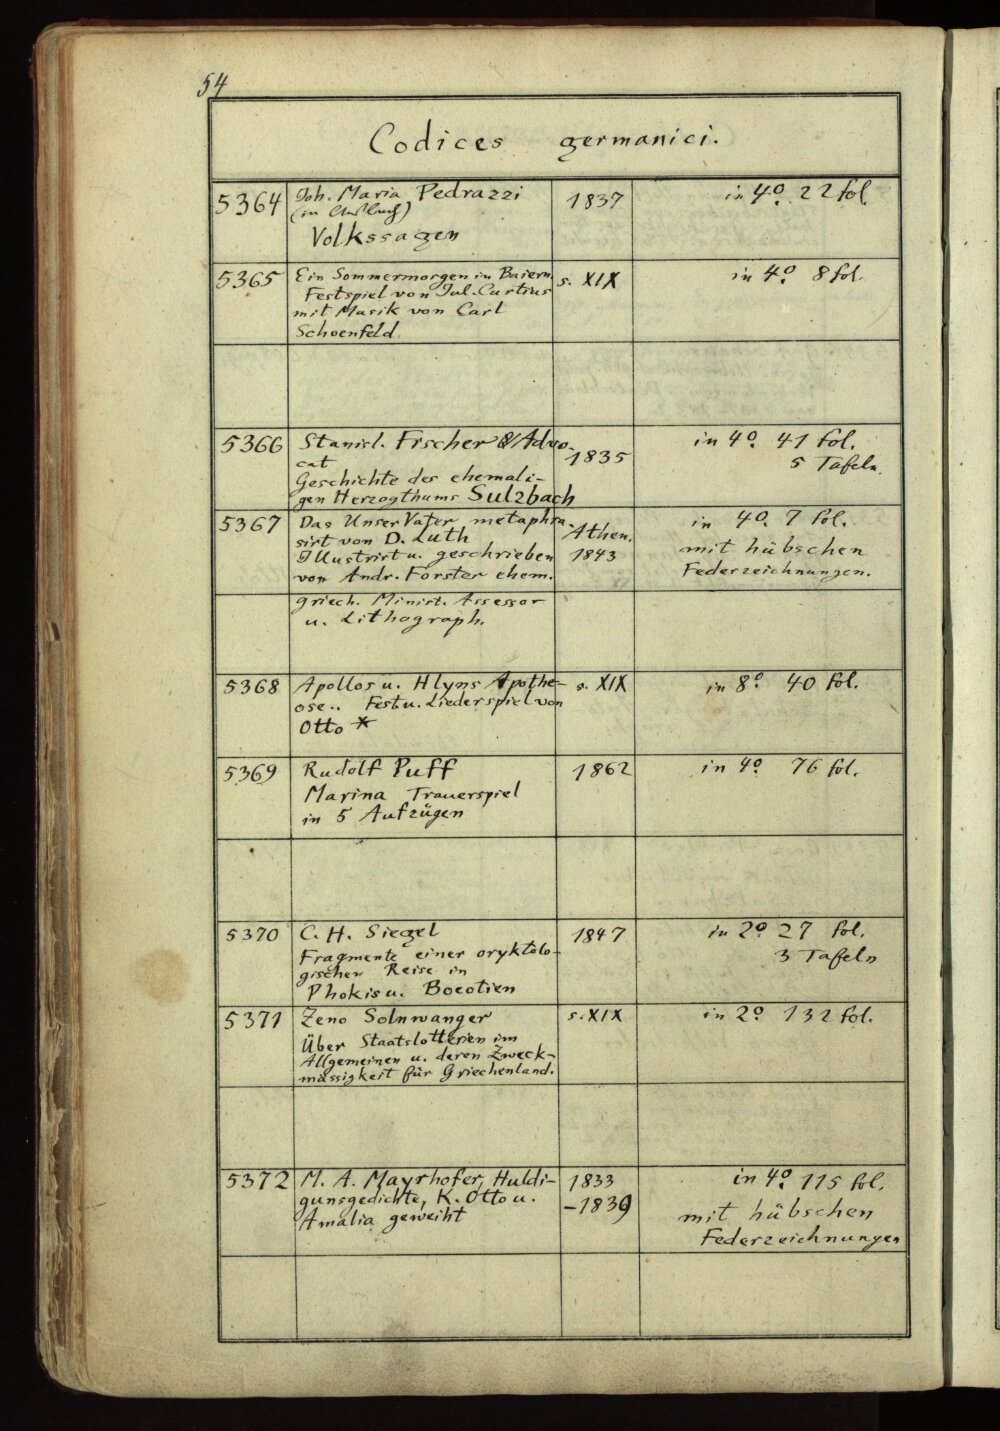 54
Codices germanici.
5364 Joh. Maria Pedrazzi 1837 in 4º. 22 fol.
(in
Volkssagen
5365 Ein Sommermorgen in Baiern. s. XIX in 4º. 8 fol.
Festspiel von Jul. Curtius
mit Musik von Carl
Schoenfeld.
5366 Stanisl. Fischer Advo- 1835 in 4º. 41 fol.
cat 5 Tafeln.
Geschichte des ehemali-
gen Herzogthums Sulzbach
5367 Das Unser Vater metaphra- Athen. in 4º. 7 fol.
sirt von D. Luth 1843 mit hübschen
Illustrirt u. geschrieben Federzeichnungen.
von Andr. Forster ehem.
griech. Minist. Assessor
u. Lithograph.
5368 Apollos u. Hlyns Apothe- s. XIX in 8º. 40 fol.
ose.. Fest u. Liederspiel von
Otto *
5369 Rudolf Puff 1862 in 4º. 76 fol.
Marina Trauerspiel
in 5 Aufzügen
5370 C. H. Siegel 1847 in 2º. 27 fol.
Fragmente einer oryktolo- 3 Tafeln
gischen Reise in
Phokis u. Boeotien
5371 Zeno Solnwanger s. XIX in 2º. 132 fol.
Über Staatslotterien im
Allgemeinen u. deren Zweck-
mässigkeit für Griechenland.
5372 M. A. Mayrhofer, Huldi- 1833 in 4º. 115 fol.
gunsgedichte, K. Otto u. -1839 mit hübschen
Amalia geweiht Federzeichnungen